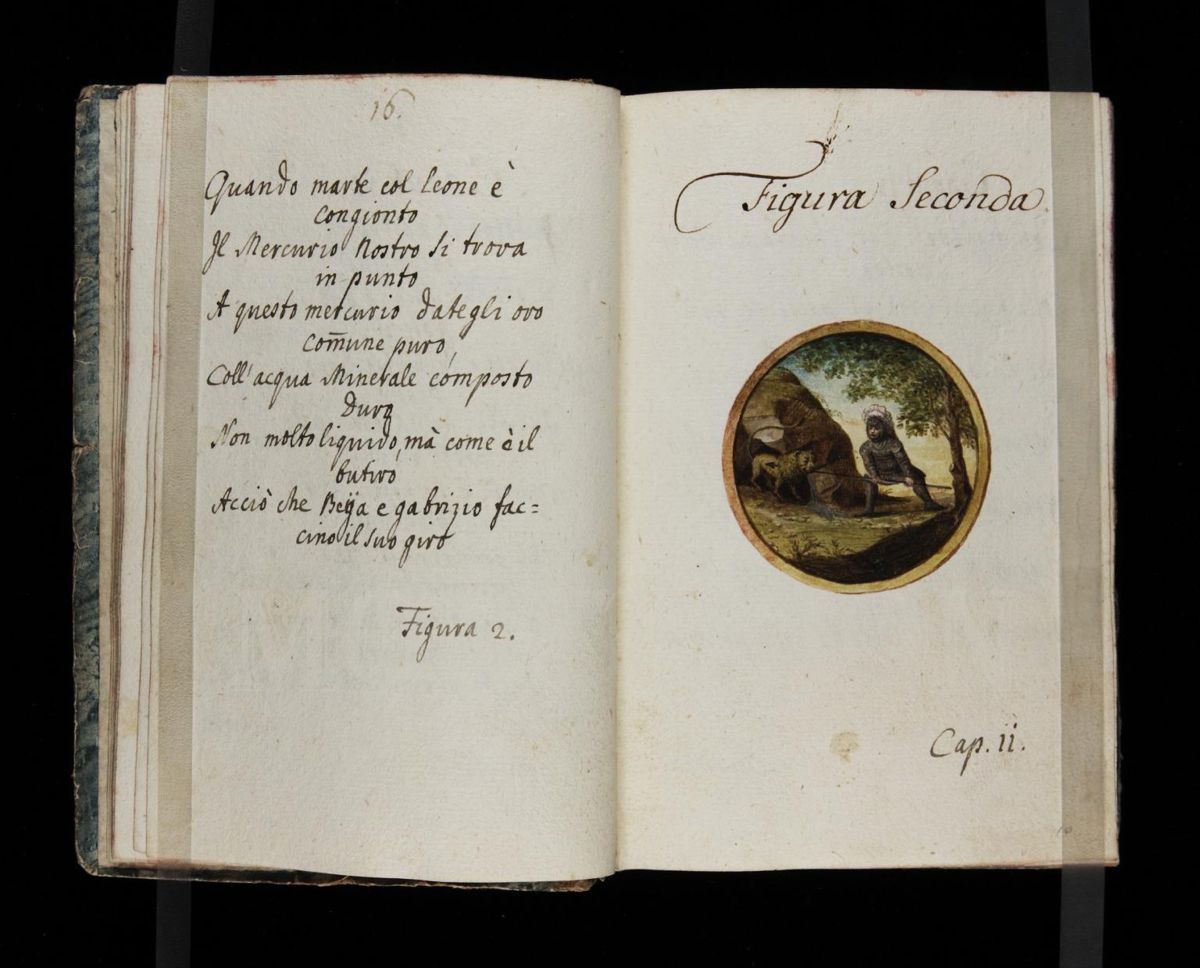 16.
Quando marte col leone è
congionto
Il Mercurio Nostro si trova
in punto
A questo mercurio dategli oro
com̄une puro,
Coll' acqua Minerale composto
duro
Non molto liquido, mà come è il
butiro
Acciò che Beÿa e gabrizio fac=
cino il suo giro
Figura 2.
Figura Seconda.
Cap. ii.